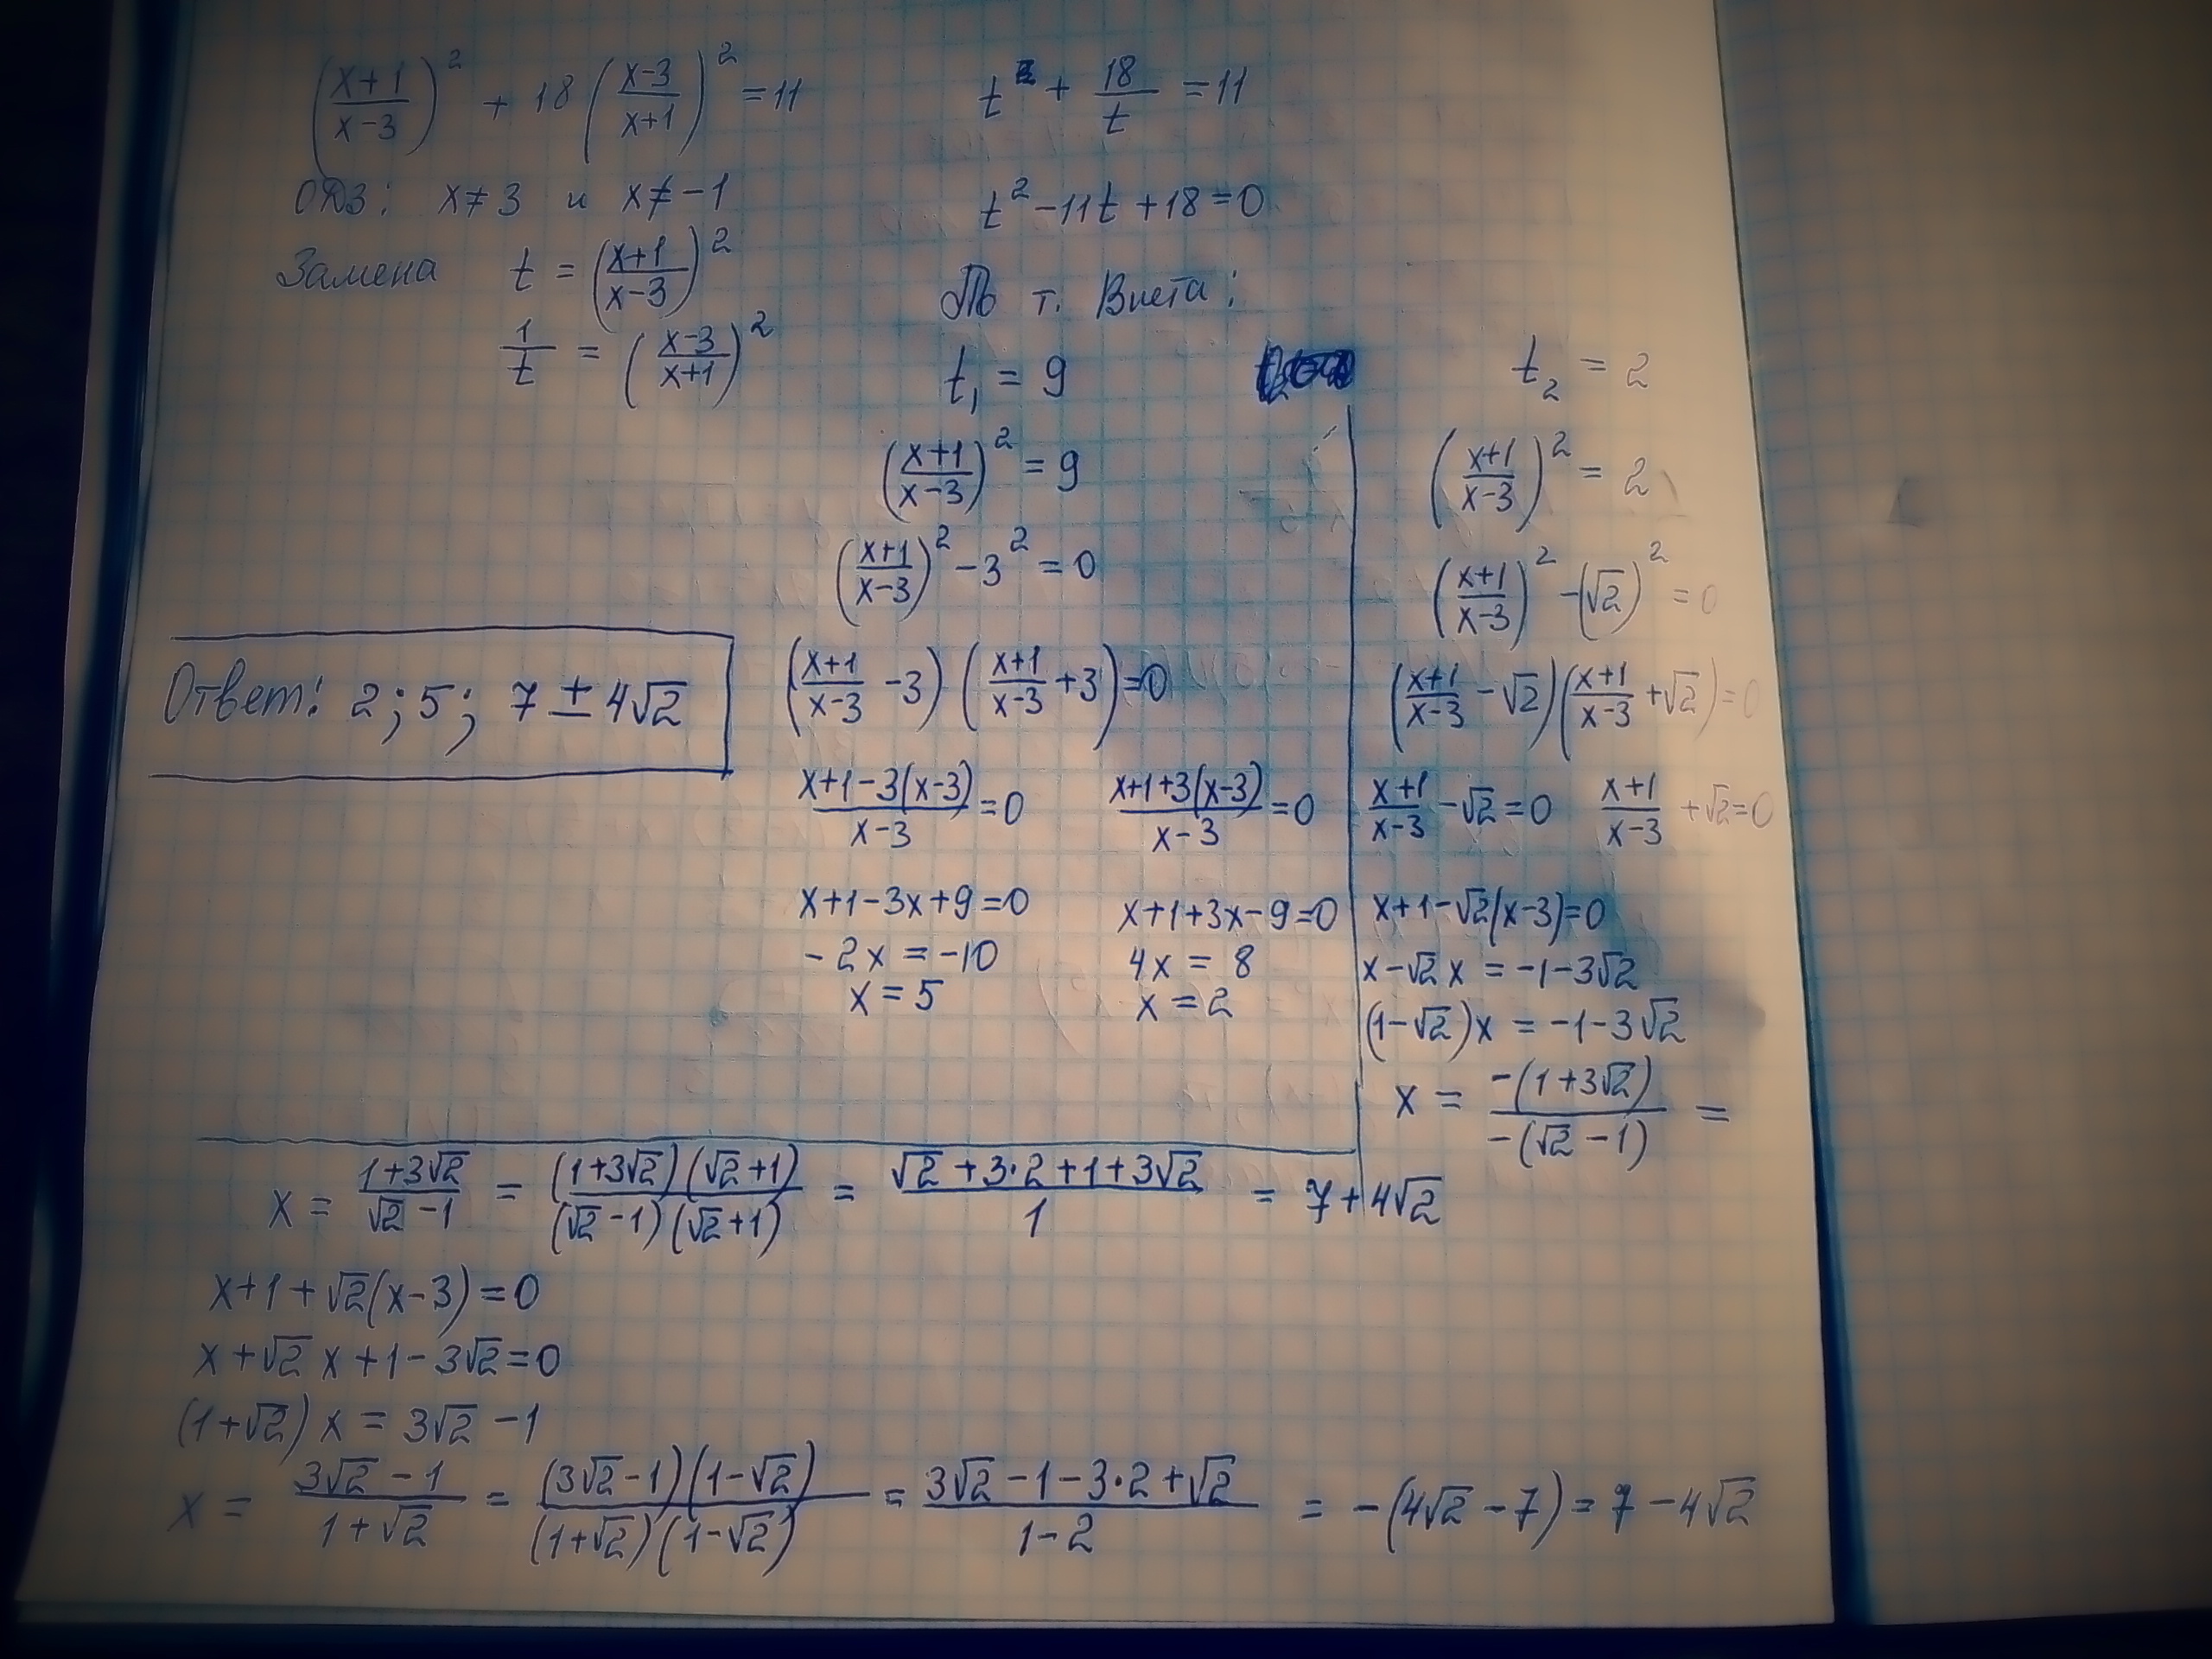 ((x+1)/(x-3))² + 18((x-3)/(x+1))² = 11
ОДЗ: x≠3 и x≠-1
Замена t = ((x+1)/(x-3))²
1/t = ((x-3)/(x+1))²
t + 18/t = 11
t² - 11t + 18 = 0
По т. Виета:
t₁ = 9
((x+1)/(x-3))² = 9
((x+1)/(x-3))² - 3² = 0
((x+1)/(x-3) - 3)((x+1)/(x-3) + 3) = 0
(x+1-3(x-3))/(x-3) = 0 (x+1+3(x-3))/(x-3) = 0
x+1-3x+9=0 x+1+3x-9=0
-2x = -10 4x = 8
x = 5 x = 2
t₂ = 2
((x+1)/(x-3))² = 2
((x+1)/(x-3))² - (√2)² = 0
((x+1)/(x-3) - √2)((x+1)/(x-3) + √2) = 0
(x+1)/(x-3) - √2 = 0 (x+1)/(x-3) + √2 = 0
x+1-√2(x-3)=0
x-√2x = -1-3√2
(1-√2)x = -1-3√2
x = -(1+3√2)/-(√2-1) =
x = (1+3√2)/(√2-1) = (1+3√2)(√2+1)/(√2-1)(√2+1) = (√2+3·2+1+3√2)/1 = 7+4√2
x+1+√2(x-3)=0
x+√2x+1-3√2=0
(1+√2)x = 3√2-1
x = (3√2-1)/(1+√2) = (3√2-1)(1-√2)/(1+√2)(1-√2) = (3√2-1-3·2+√2)/(1-2) = -(4√2-7) = 7-4√2
Ответ: 2; 5; 7±4√2